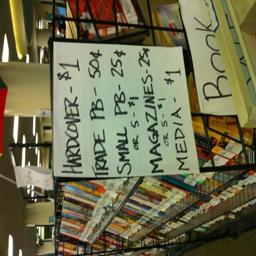 HARDCOVER - $1
TRADE PB - 50¢
SMALL PB - 25¢
OR 5 - $1
MAGAZINES - 25¢
OR 5 - $1
MEDIA - $1
Book